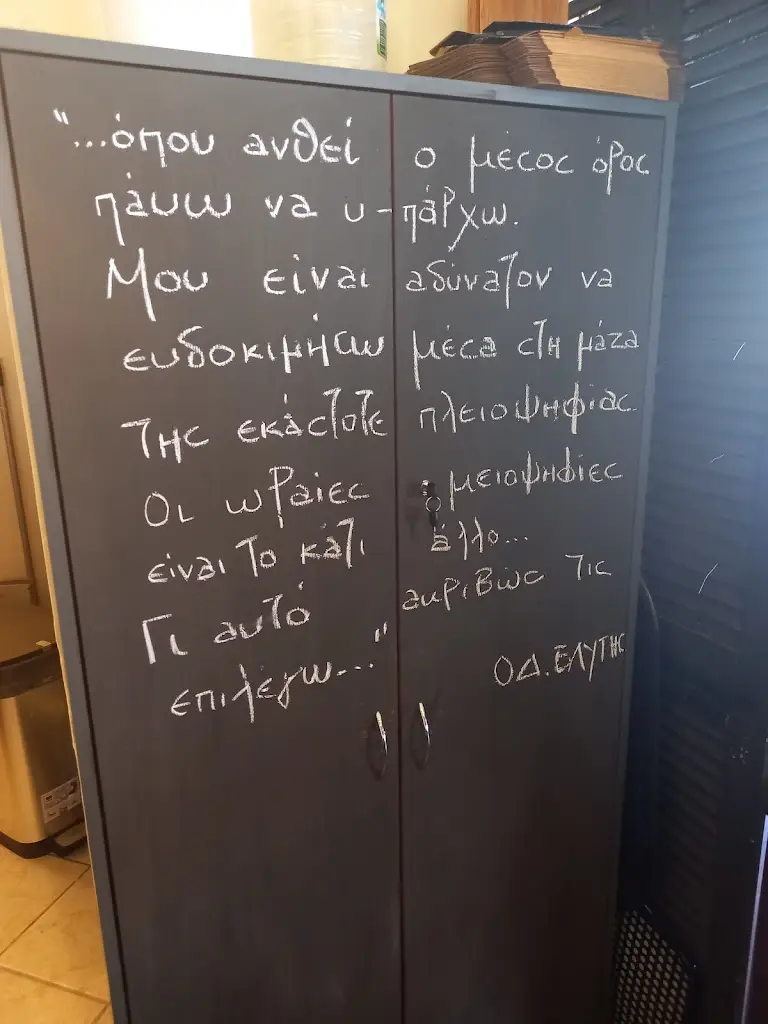 "...όπου ανθεί ο μέσος όρος
πάυω να υ-πάρχω.
Μου είναι αδύνατον να
ευδοκιμήσω μέσα στη μάζα
της εκάστοτε πλειοψηφίας.
Οι ωραίες μειοψηφίες
είναι το κάτι άλλο...
Γι αυτό ακριβώς τις
επιλέγω..."
ΟΔ. ΕΛΥΤΗΣ